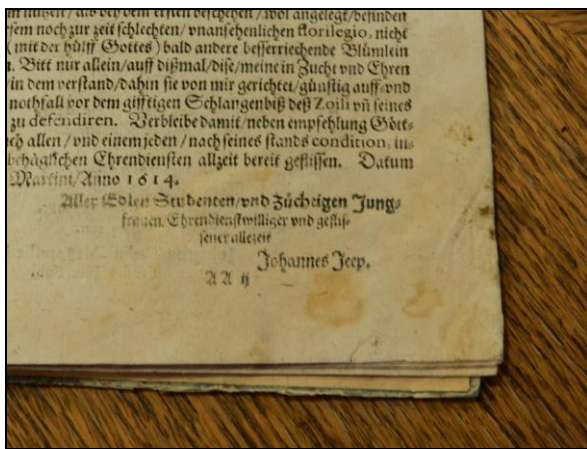 in nutzen/als bey dem ersten beschehen/wol angelegt/befinden
sem noch zur zeit schlechten/vnansehenlichen florilegio, nicht
(mit der hülff Gottes) bald andere besserriechende Blümlein
n. Bitt nur allein/auff dißmal/dise/meine in Zucht vnd Ehren
in dem verstand/dahin sie von mir gerichtet/günstig auff vnd
nothfall vor dem gifftigen Schlangenbiß deß Zoili vñ seines
zu defendiren. Verbleibe damit/neben empfehlung Gött-
ch allen/vnd einem jeden/nach seines stands condition, in-
behäglichen Ehrendiensten allzeit bereit geflissen. Datum
Martini/Anno 1614.
Aller Edlen Studenten/vnd Züchtigen Jung-
frauen, Ehrendienstwilliger vnd geflis-
sener allezeit
Johannes Jeep.
AA ij